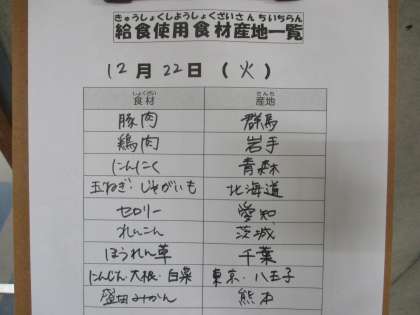 きゅうしょくしようしょくざいさんちいちらん
給食使用食材産地一覧
12月22日(火)
しょくざい さんち
食材 産地
豚肉 群馬
鶏肉 岩手
にんにく 青森
玉ねぎ・じゃがいも 北海道
セロリー 愛知
れんこん 茨城
ほうれん草 千葉
にんじん・大根・白菜 東京・八王子
みかん 熊本